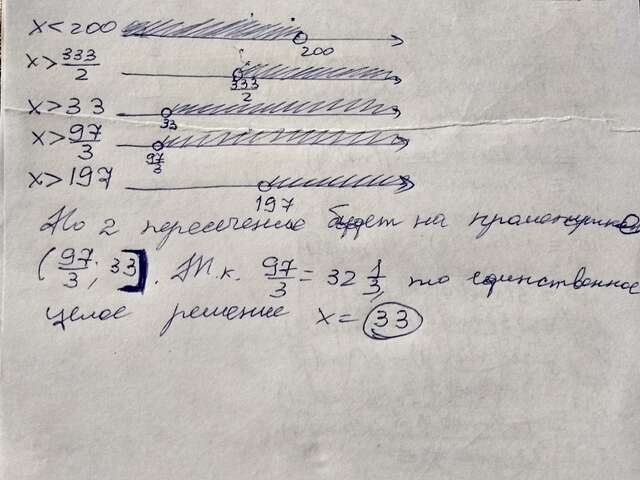 x < 200 200
x > 333/2 333/2
x > 33 33
x > 97/3 97/3
x > 197 197
По 2 пересечение будет на промежутке
(97/3; 33]. Т.к. 97/3 = 32 1/3, то единственное
целое решение x = 33